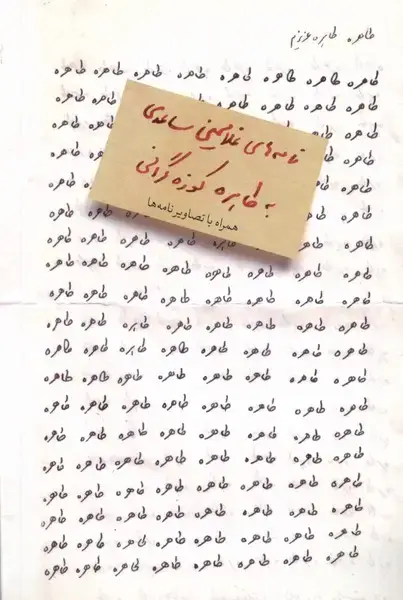 طاهره طاهره عزیزم
طاهره طاهره طاهره طاهره طاهره طاهره طاهره طاهره
طاهره طاهره طاهره طاهره طاهره طاهره طاهره طاهره
طاهره طاهره طاهره طاهره
طاهره طاهره طاهره
طاهره طاهره طاهره
طاهره طاهره طاهره
نامه‌های غلامحسین ساعدی
به طاهره کوزه‌گرانی
همراه با تصاویر نامه‌ها
طاهره طاهره طاهره طاهره طاهره طاهره طاهره
طاهره طاهره طاهره طاهره طاهره طاهره طاهره طاهره
طاهره طاهره طاهره طاهره طاهره طاهره طاهره طاهره
طاهره طاهره طاهره طاهره طاهره طاهره طاهره طاهره
طاهره طاهره طاهره طاهره طاهره طاهره طاهره طاهره
طاهره طاهره طاهره طاهره طاهره طاهره طاهره طاهره
طاهره طاهره طاهره طاهره طاهره طاهره طاهره طاهره
طاهره طاهره طاهره طاهره طاهره طاهره طاهره طاهره
طاهره طاهره طاهره طاهره طاهره طاهره طاهره طاهره
طاهره طاهره طاهره طاهره طاهره طاهره طاهره طاهره
طاهره طاهره طاهره طاهره طاهره طاهره طاهره طاهره
طاهره طاهره طاهره طاهره طاهره طاهره طاهره طاهره
طاهره طاهره طاهره طاهره طاهره طاهره طاهره طاهره